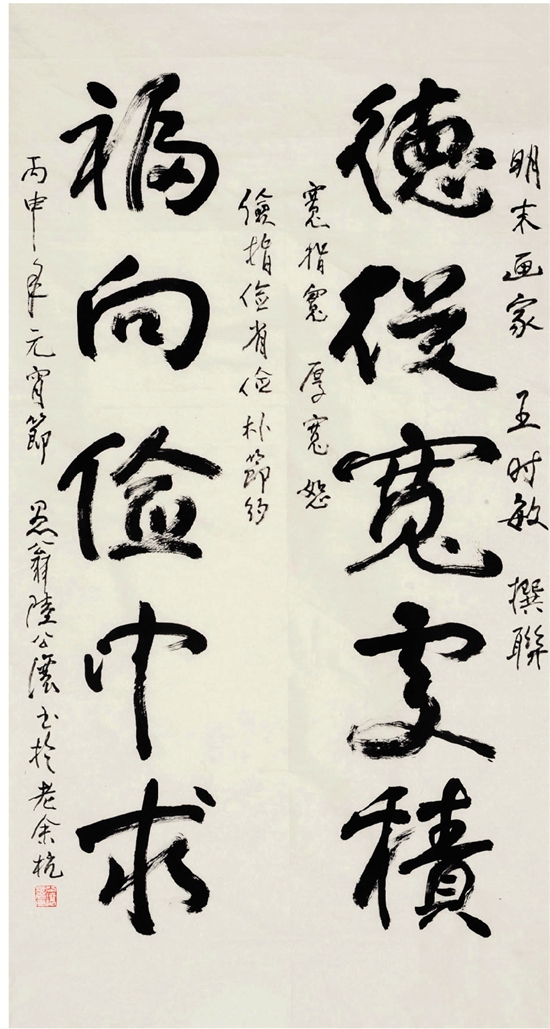 明末画家 王时敏 撰聯
德従寬處積
寬指寬厚寬恕
儉指儉省儉朴節約
福向儉中求
丙申年元宵節 愚翁陸公讓书於老余杭